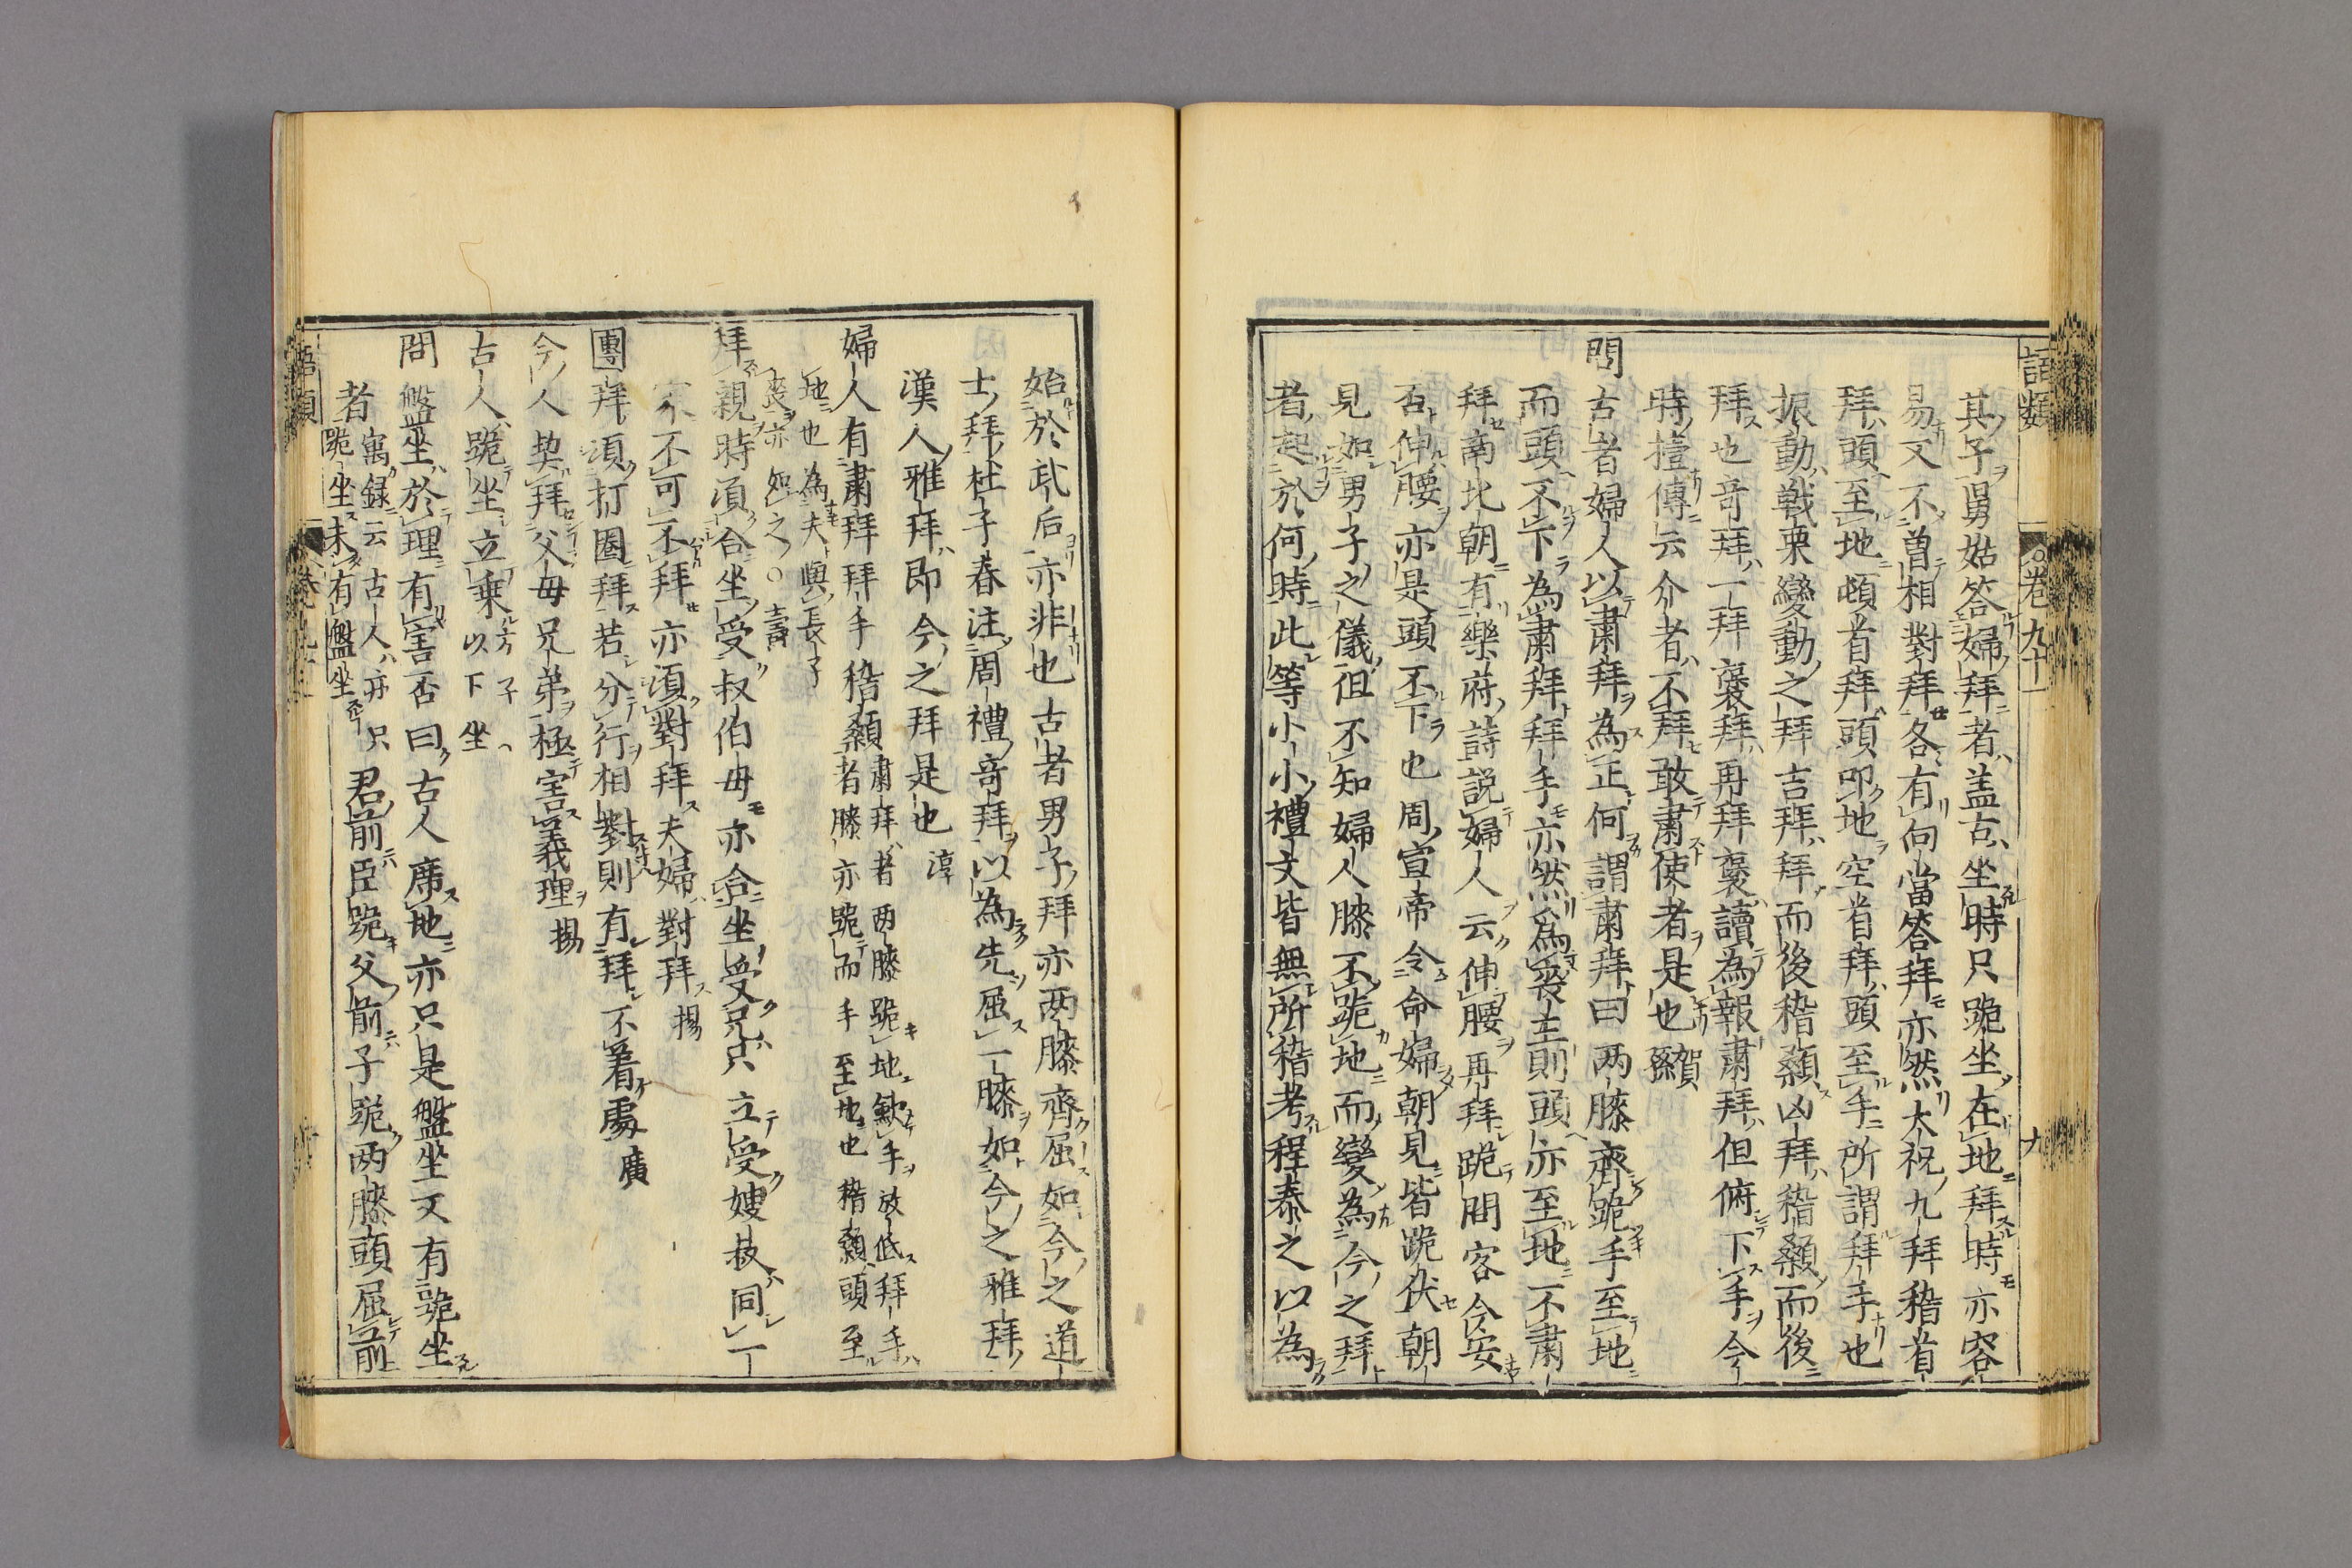 語類 卷九十一 九
其子舅姑答婦拜者盖古坐時只跪坐在地拜時亦容
易又不曽相對拜各有向當答拜亦然大祝九拜稽首
拜頭至地頓首拜頭叩地空首拜頭至手所謂拜手也
振動戰栗變動之拜吉拜拜而後稽顙凶拜稽顙而後
拜也竒拜一拜褒拜再拜褒讀為報肅拜但俯下手今
時擡傳云介者不拜敢肅使者是也賀孫
問古者婦人以肅拜為正何謂肅拜曰两膝齊跪手至地
而頭不下為肅拜拜手亦然爲喪主則頭亦至地不肅
拜南北朝有樂府詩說婦人云伸腰再拜跪問客今安
否伸腰亦是頭不下也周宣帝令命婦朝見皆跪伏朝
見如男子之儀但不知婦人膝不跪地而變為今之拜
者起於何時此等小小禮文皆無所稽考程泰之以為
始於武后亦非也古者男子拜亦两膝齊屈如今之道
士拜杜子春注周禮竒拜以為先屈一膝如今之雅拜
漢人雅拜即今之拜是也 淳
婦人有肅拜拜手稽顙 肅拜者两膝跪地歛手放低拜手
者膝亦跪而手至地也稽顙頭至
地也為夫與長子
喪亦如之 ○ 壽
拜親時須合坐受叔伯母亦合坐受兄只立受嫂叔同一
家不可不拜亦須對拜夫婦對拜 揚
團拜須打圈拜若分行相對則有拜不着處 廣
今人契拜父母兄弟極害義理 揚
古人跪坐立乗 方子
以下坐
問盤坐於理有害否曰古人席地亦只是盤坐又有跪坐
者 寓録云古人亦只
跪坐未有盤坐 君前臣跪父前子跪两膝頭屈前
語類